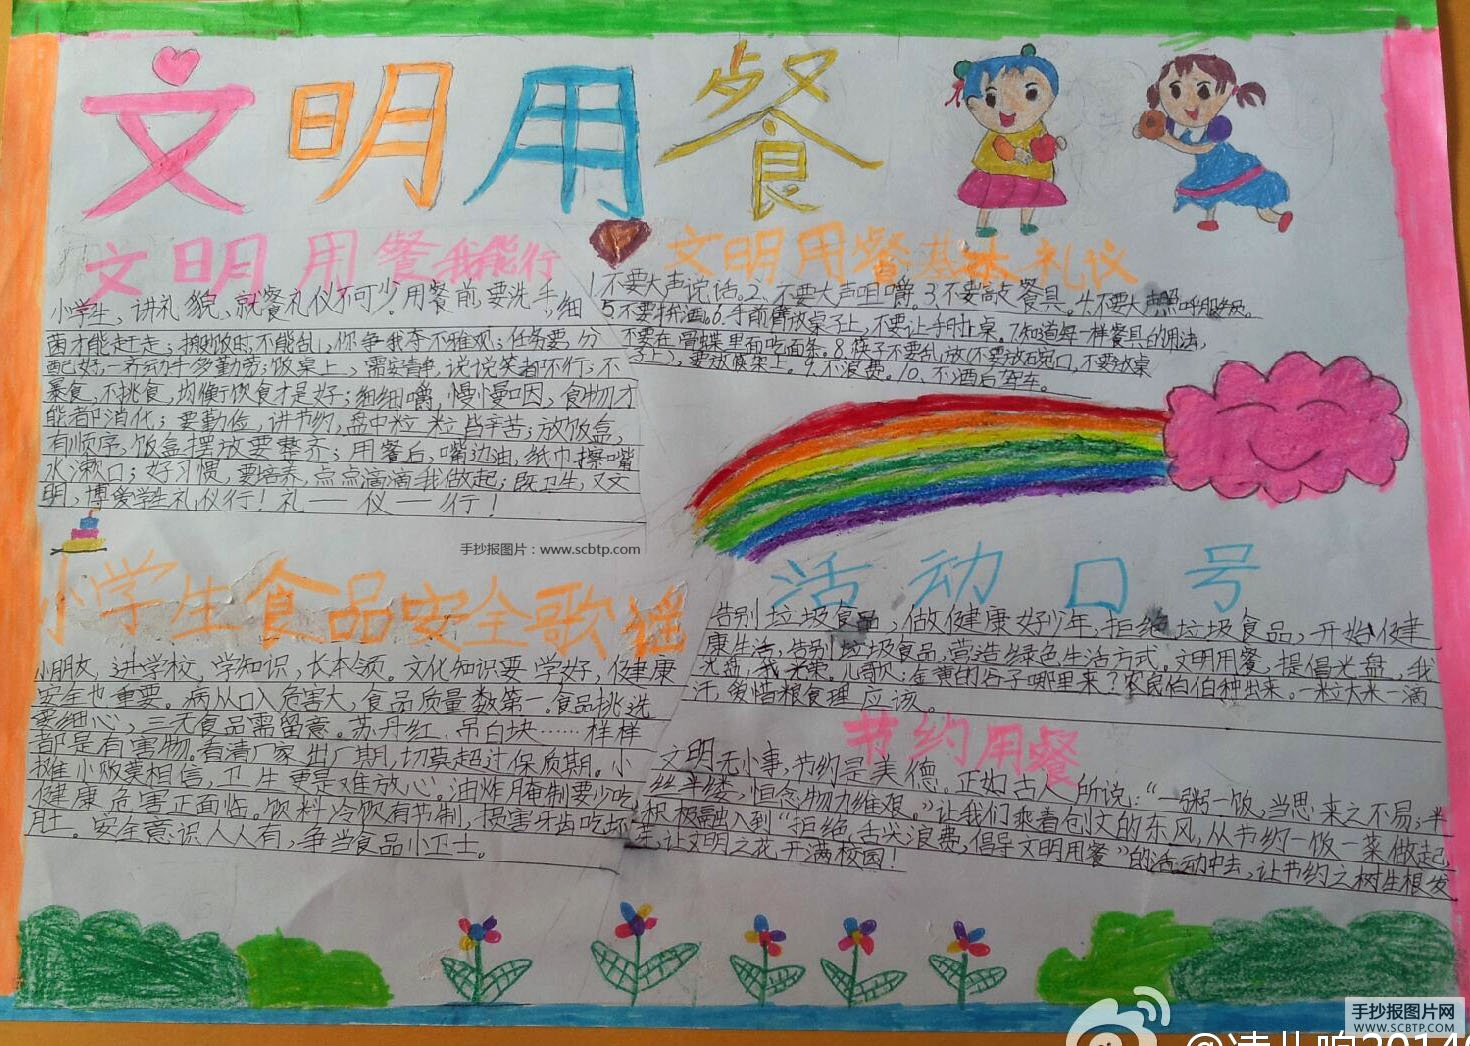 文明用餐
文明用餐我能行
小学生,讲礼貌、就餐礼仪不可少,用餐前,要洗手,细
菌才能赶走;排队打饭时,不能乱,你争我夺不雅观;任务要分
配好,一齐动手多勤劳;饭桌上,需安静,说说笑都不行;不
暴食,不挑食,均衡饮食才是好;细细嚼,慢慢咽,食物才
能都消化;要勤俭,讲节约,盘中粒粒皆辛苦;放饭盒,
有顺序,饭盒摆放要整齐;用餐后,嘴边油,纸巾擦嘴
水漱口;好习惯,要培养,点点滴滴我做起;既卫生,又文
明,博爱学生礼仪行!礼一一仪一一行!
文明用餐基本礼仪
1不要大声说话。2、不要大声咀嚼。3.不要敲餐具。4.不要大声呼服务员。
5不要拼酒。6.手前臂放桌子上,不要让手肘上桌。7.知道每一样餐具的用法,
不要在骨蝶里面吃面条。8.筷子不要乱放(不要放碗口,不要放桌
子上),要放筷架上。9.不浪费。10、不酒后驾车。
手抄报图片:www.scbtp.com
小学生食品安全歌谣
小朋友,进学校,学知识,长本领。文化知识要学好,健康
安全也重要。病从口入危害大,食品质量数第一。食品挑选
要细心,三无食品需留意。苏丹红、吊白块……样样
都是有害物。看清厂家出厂期,切莫超过保质期。小
摊小贩莫相信,卫生更是难放心。油炸腌制要少吃,
健康危害正面临。饮料冷饮有节制,损害牙齿吃坏
肚。安全意识人人有,争当食品小卫士。
活动口号
告别垃圾食品,做健康好少年,拒绝垃圾食品,开始健
康生活,告别垃圾食品,营造绿色生活方式。文明用餐,提倡光盘,我
光盘,我光荣。儿歌:金黄的谷子哪里来?农民伯伯种出来。一粒大米一滴
汗,爱惜粮食理应该。
节约用餐
文明无小事,节约是美德。正如古人所说:“一粥一饭,当思来之不易;半
丝半缕,恒念物力维艰。”让我们乘着创文的东风,从节约一饭一菜做起,
积极融入到“拒绝舌尖浪费,倡导文明用餐”的活动中去,让节约之树生根发
芽,让文明之花开满校园!
手抄报图片网
WWW.SCBTP.COM